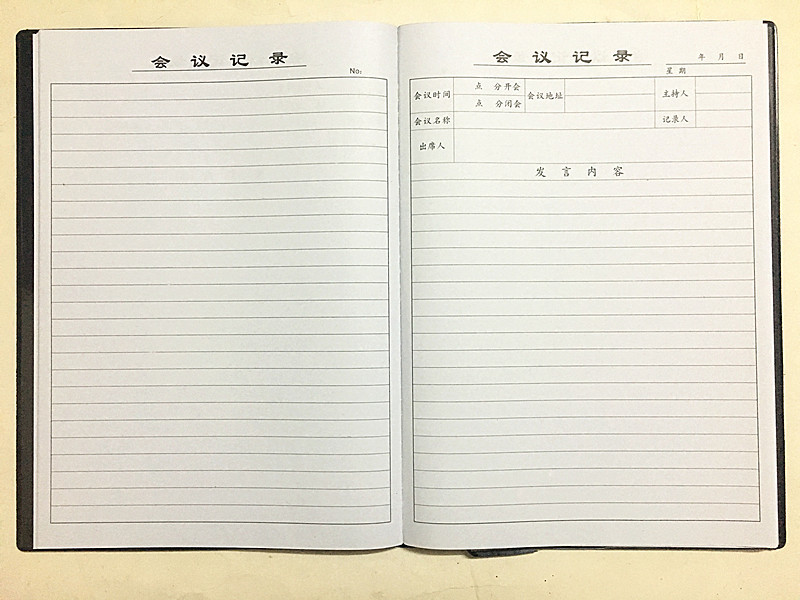 会议记录
No:
会议记录
年 月 日
星期
会议时间 点 分开会 会议地址 主持人
点 分闭会
会议名称 记录人
出席人
发言内容